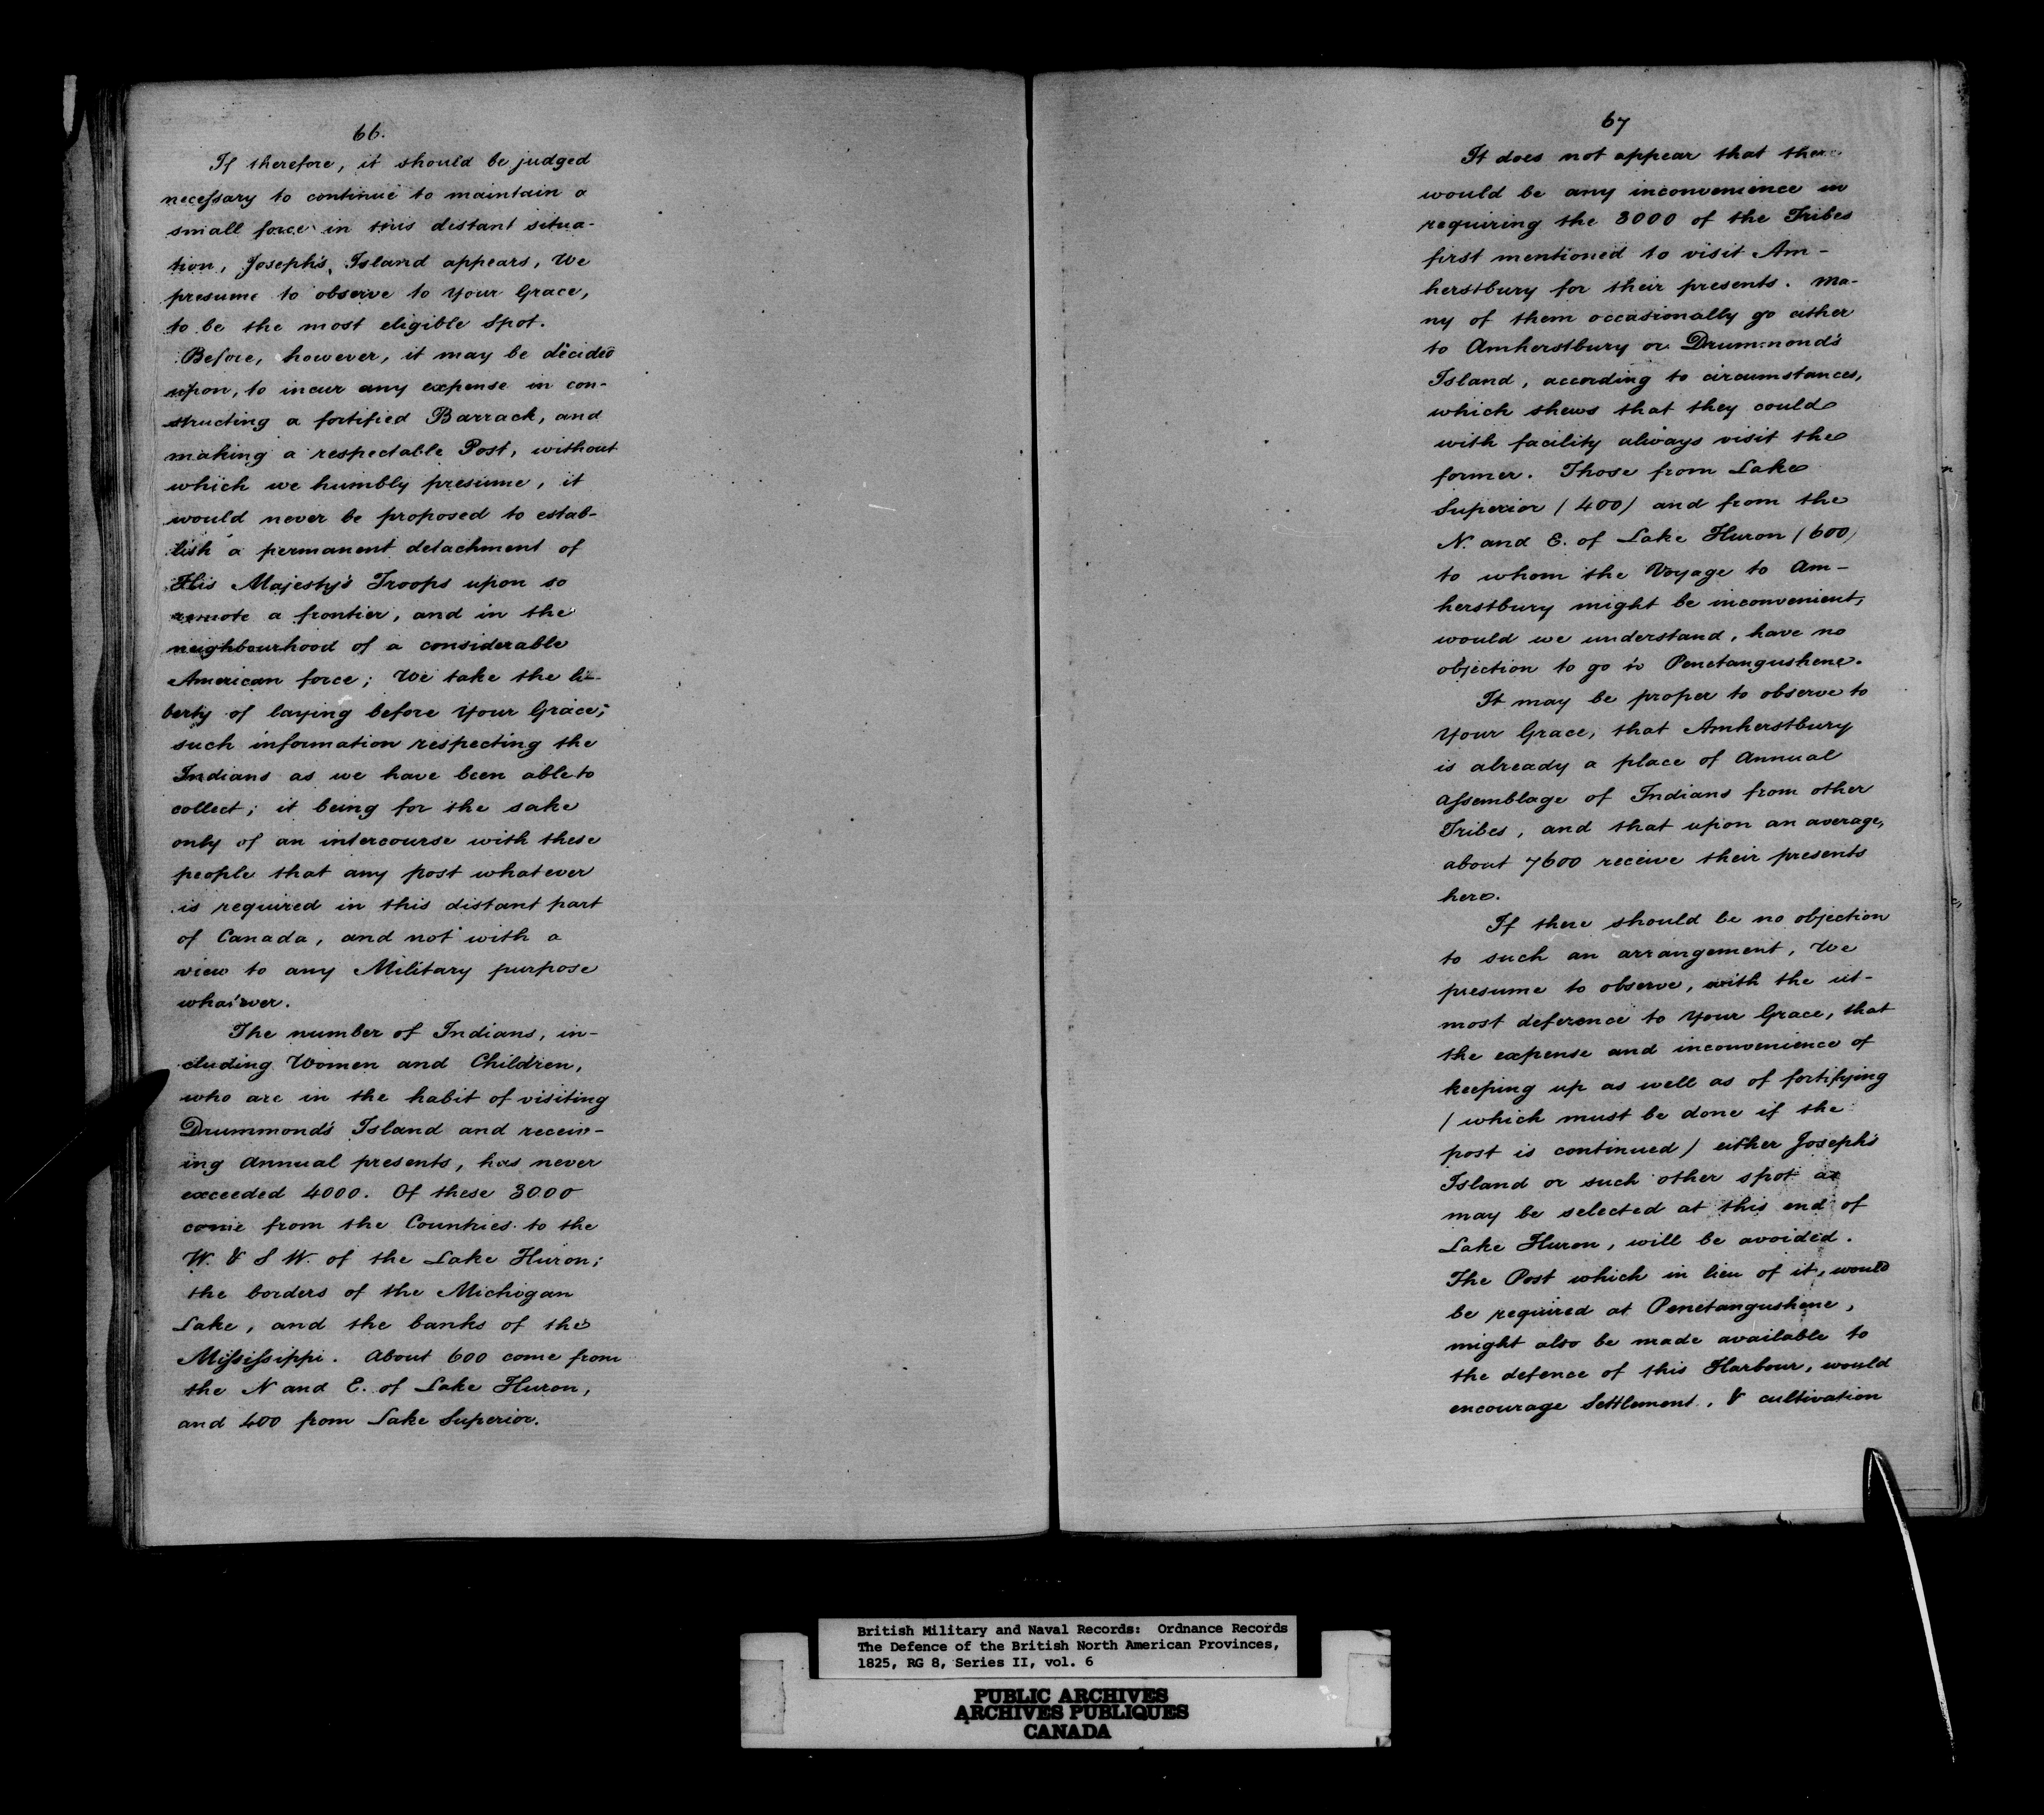 66.
If therefore, it should be judged
necessary to continue to maintain a
small force in this distant situa-
tion, Joseph's Island appears, We
presume to observe to Your Grace,
to be the most eligible Spot.
Before, however, it may be decided
upon, to incur any expense in con-
structing a fortified Barrack, and
making a respectable Post, without
which we humbly presume, it
would never be proposed to estab-
lish a permanent detachment of
His Majesty's Troops upon so
remote a frontier, and in the
neighbourhood of a considerable
American force; We take the li-
berty of laying before Your Grace;
such information respecting the
Indians as we have been able to
collect; it being for the sake
only of an intercourse with these
people that any post whatever
is required in this distant part
of Canada, and not with a
view to any Military purpose
whatever.
The number of Indians, in-
cluding Women and Children,
who are in the habit of visiting
Drummond's Island and receiv-
ing Annual presents, has never
exceeded 4000. Of these 3000
come from the Countries to the
W. & S W. of the Lake Huron;
the borders of the Michigan
Lake, and the banks of the
Mississippi. About 600 come from
the N and E. of Lake Huron,
and 400 from Lake Superior.
67
It does not appear that there
would be any inconvenience in
requiring the 3000 of the Tribes
first mentioned to visit Am-
herstbury for their presents. Ma-
ny of them occasionally go either
to Amherstbury or Drummond's
Island, according to circumstances,
which shews that they could
with facility always visit the
former. Those from Lake
Superior (400) and from the
N. and E. of Lake Huron (600)
to whom the Voyage to Am-
herstbury might be inconvenient,
would we understand, have no
objection to go to Penetangushene.
It may be proper to observe to
Your Grace, that Amherstbury
is already a place of Annual
Assemblage of Indians from other
Tribes, and that upon an average,
about 7600 receive their presents
here.
If there should be no objection
to such an arrangement, We
presume to observe, with the ut-
most deference to Your Grace, that
the expense and inconvenience of
keeping up as well as of fortifying
(which must be done if the
post is continued) either Joseph's
Island or such other spot as
may be selected at this end of
Lake Huron, will be avoided.
The Post which in lieu of it, would
be required at Penetangushene,
might also be made available to
the defence of this Harbour, would
encourage Settlement, & cultivation
British Military and Naval Records: Ordnance Records
The Defence of the British North American Provinces,
1825, RG 8, Series II, vol. 6
PUBLIC ARCHIVES
ARCHIVES PUBLIQUES
CANADA